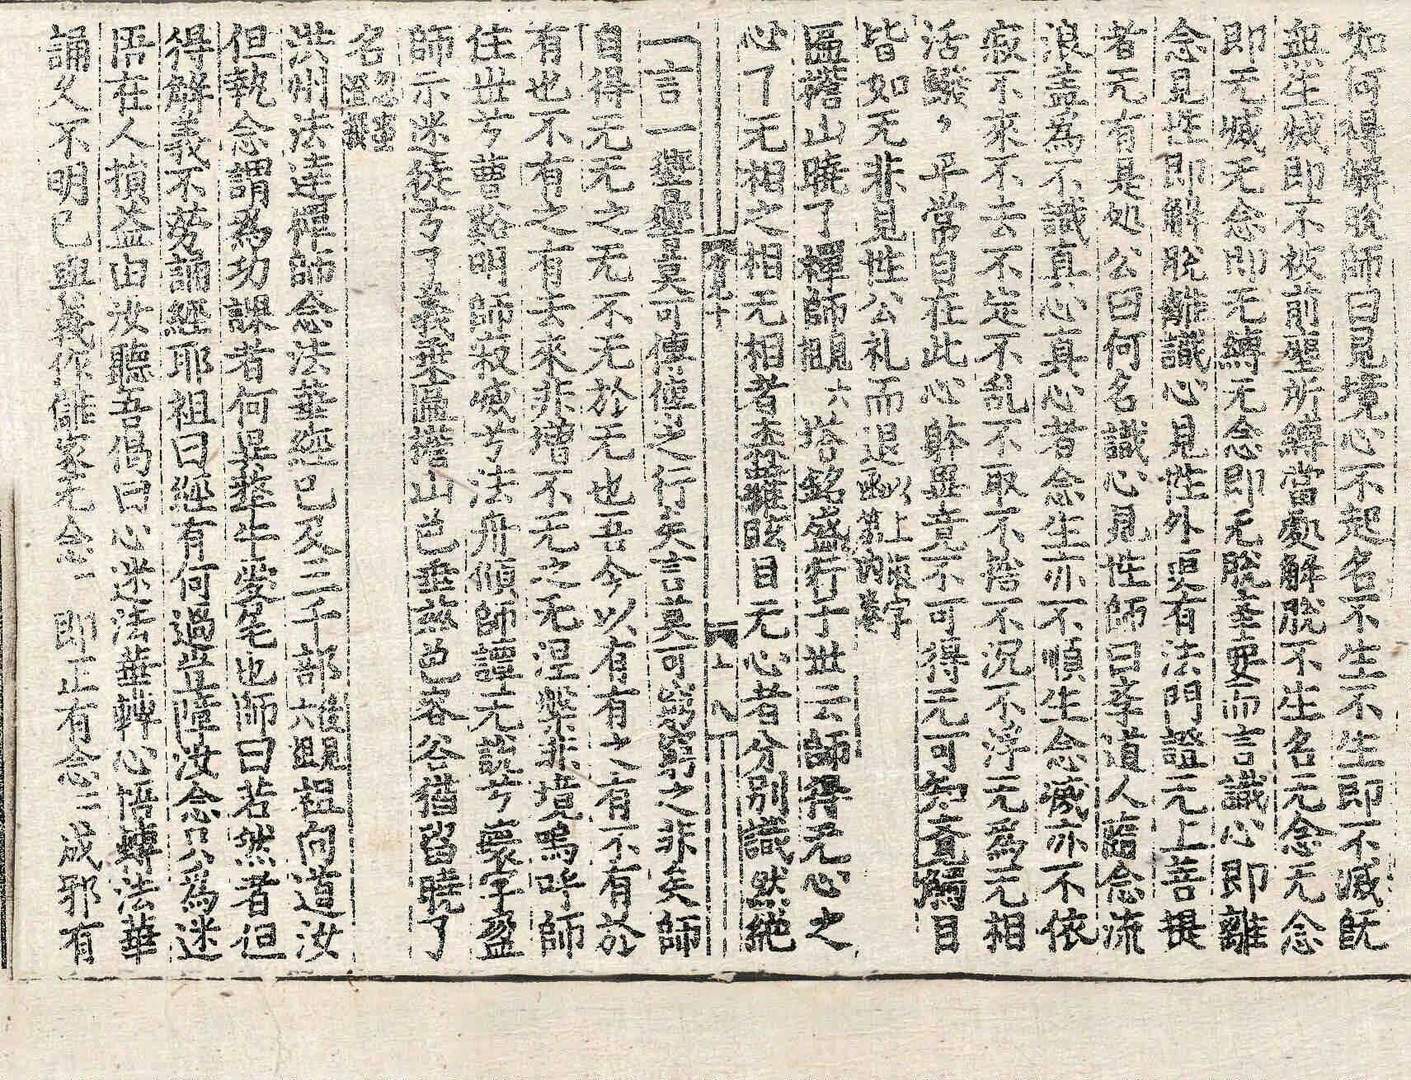 如何得解脫師曰見境心不起名不生不生即不滅旣
無生滅即不被前塵所縛當處解脫不生名无念无念
即无滅无念即无縛无念即无脫至要而言識心即離
念見性即解脫離識心見性外更有法門證无上菩提
者无有是処公曰何名識心見性師曰李道人臨念流
浪盖爲不識真心真心者念生亦不順生念滅亦不依
寂不來不去不定不乱不取不捨不沉不浮无爲无相
活鱍〻平常自在此心躰畢竟不可得无可知竟觸目
皆如无非見性公礼而退以上
匾檐山曉了禪師覞六塔銘盛行于世云師得无心之
心了无相之相无相者森羅眩目无心者分別識然絶
一言一響響莫可傳傳之行矣言莫可窮窮之非矣師
自得无无之无不无於无也吾今以有有之有不有於
有也不有之有去來非增不无之无涅槃非境嗚呼師
住世兮曹谿明師寂滅兮法舟傾師譚无說兮寰宇盈
師示迷徒兮了義乗匾檐山色垂玆色㝐谷猶留曉了
名
洪州法達禪師念法華經已及三千部後覞六祖祖向道汝
但執念謂爲功課者何異犛牛愛尾也師曰若然者但
得解義不勞誦經耶祖曰經有何過豈障汝念只爲迷
悟在人損益由汝聽吾偈曰心迷法華轉心悟轉法華
誦久不明已與義作讎家无念〻即正有念〻成邪有